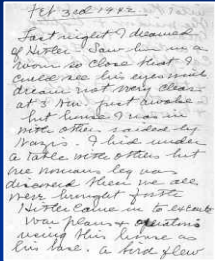 Feb 3rd 1942.
Last night I dreamed
of Hitler. Saw him in a
room so close that I
could see his eyes
dream not very clear
at 3 AM. just awake
but house I was in
with others raided by
Nazis. I hid under
a table with others but
one womans leg was
discovered then we all
were brought forth.
Hitler came in to execute
war plans & operations
using this house as
his base. a bird flew